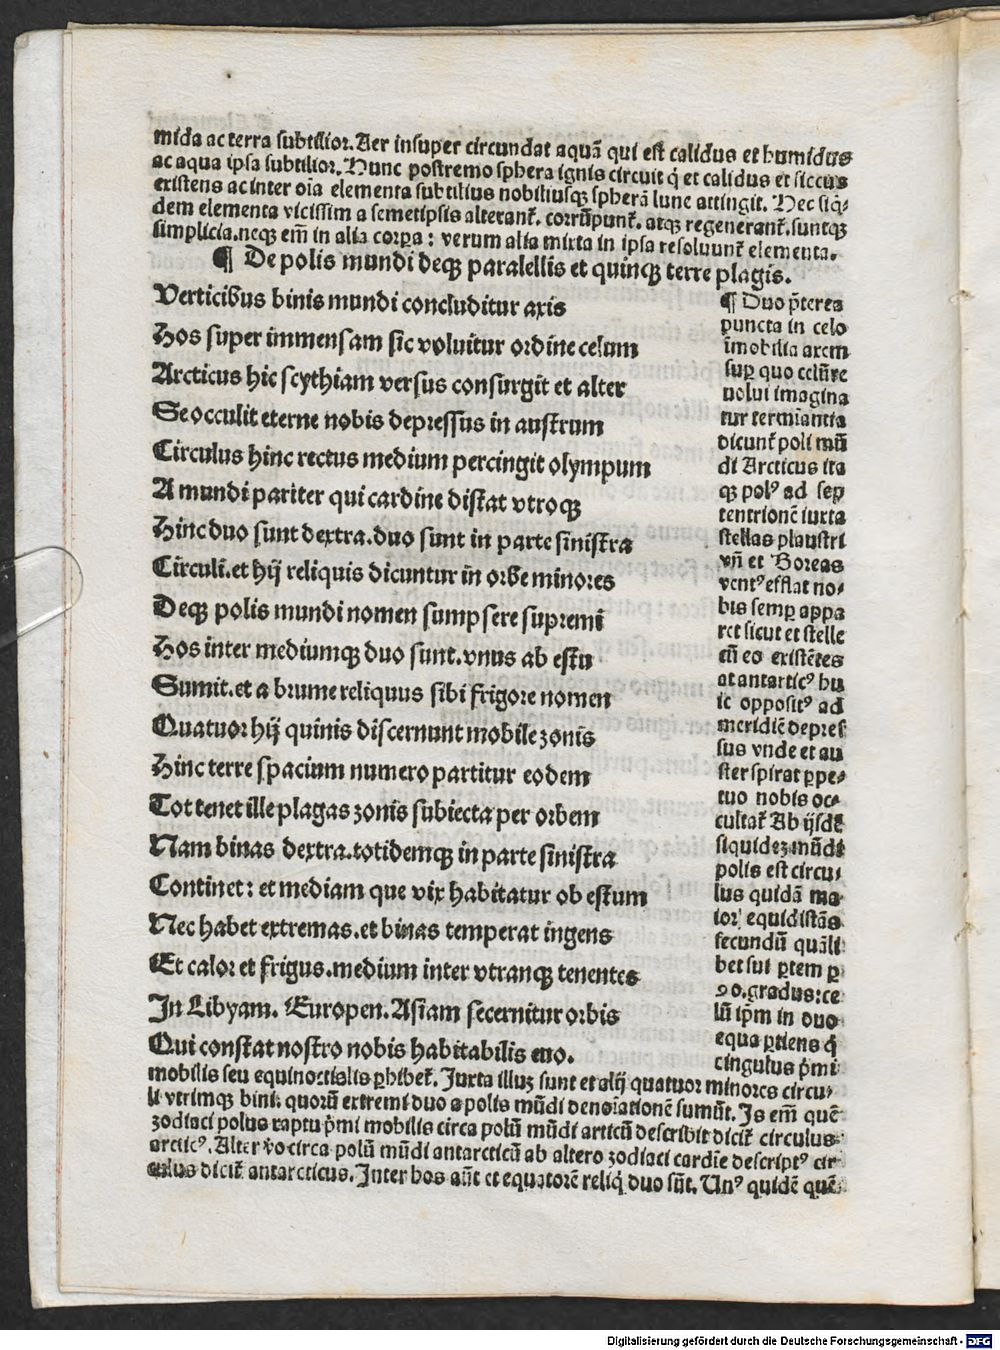 mida ac terra subtilior. Aer insuper circundat aquā qui est calidus et humidus
ac aqua ipsa subtilior. Nunc postremo sphera ignis circuit q̇ et calidus et siccus
existens ac inter oīa elementa subtilius nobiliusqꝫ spherā lune attingit. Hec siq̇-
dem elementa vicissim a semetipsis alterant̄. corrūpunt̄. atqꝫ regenerant̄. suntqꝫ
simplicia. neqꝫ em̄ in alia corꝑa: verum alia mixta in ipsa resoluunt̄ elementa.
¶ De polis mundi deqꝫ paralellis et quinqꝫ terre plagis.
Verticibus binis mundi concluditur axis
Hos super immensam sic voluitur ordine celum
Arcticus hic scythiam versus consurgit et alter
Se occulit eterne nobis depressus in austrum
Circulus hinc rectus medium percingit olympum
A mundi pariter qui cardine distat vtroqꝫ
Hinc duo sunt dextra. duo sunt in parte sinistra
Circuli. et hij reliquis dicuntur in orbe minores
Deqꝫ polis mundi nomen sumpsere supremi
Hos inter mediumqꝫ duo sunt. vnus ab estu
Sumit. et a brume reliquus sibi frigore nomen
Quatuor hij quinis discernunt mobile zonis
Hinc terre spacium numero partitur eodem
Tot tenet ille plagas zonis subiecta per orbem
Nam binas dextra. totidemqꝫ in parte sinistra
Continet: et mediam que vix habitatur ob estum
Nec habet extremas. et binas temperat ingens
Et calor et frigus. medium inter vtranqꝫ tenentes
In Libyam. Europen. Asiam secernitur orbis
Qui constat nostro nobis habitabilis euo.
¶ Duo p̄terea
puncta in celo
īmobilia axem
suꝑ quo celū re
uolui imagina
tur termīantia
dicunt̄ poli mū
di Arcticus ita
qꝫ polꝰ ad sep
tentrionē iuxta
stellas plaustri
vn̄ et Boreas
ventꝰ efflat no-
bis semꝑ appa
ret sicut et stelle
cū eo existētes
at antarticꝰ hu
ic oppositꝰ ad
meridiē depres
sus vnde et au
ster spirat ꝑpe-
tuo nobis oc-
cultat̄ Ab ijsdē
siquideꝫ mūdi
polis est circu-
lus quidā ma
ior equidistās
secundū quāli
bet sui ꝑtem ꝑ
90. gradus: ce
lū ip̄m in duo
equa ꝑtiens q̇
cingulus p̄mi
mobilis seu equinoctialis ꝑhibet̄. Juxta illuꝫ sunt et alij quatuor minores circu-
li vtrimqꝫ bini. quorū extremi duo a polis mūdi denoīationē sumūt. Is em̄ quē
zodiaci polus raptu p̄mi mobilis circa polū mūdi articū describit dicit̄ circulus
arcticꝰ. Alter v̊o circa polū mūdi antarcticū ab altero zodiaci cardīe descriptꝰ cir
culus dicit̄ antarcticus. Inter hos aūt et equatorē reliq̇ duo sūt. Unꝰ quidē quē